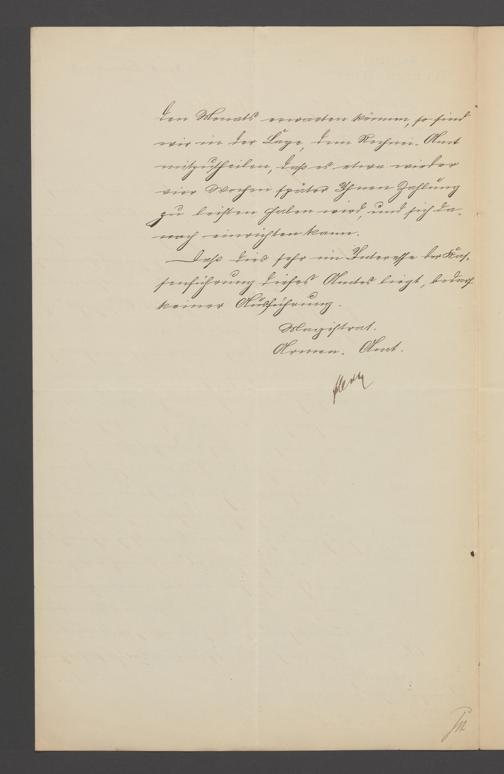 den Monats erwarten können, so sind
wir in der Lage, dem Rechnei-Amt
mitzutheilen, daß es etwa wieder
vier Wochen später Ihnen Zahlung
zu leisten haben wird, und sich da-
nach einrichten kann.
Daß dies sehr im Interesse der Kas-
senführung dieses Amtes liegt, bedarf
keiner Ausführung.
Magistrat.
Armen-Amt.